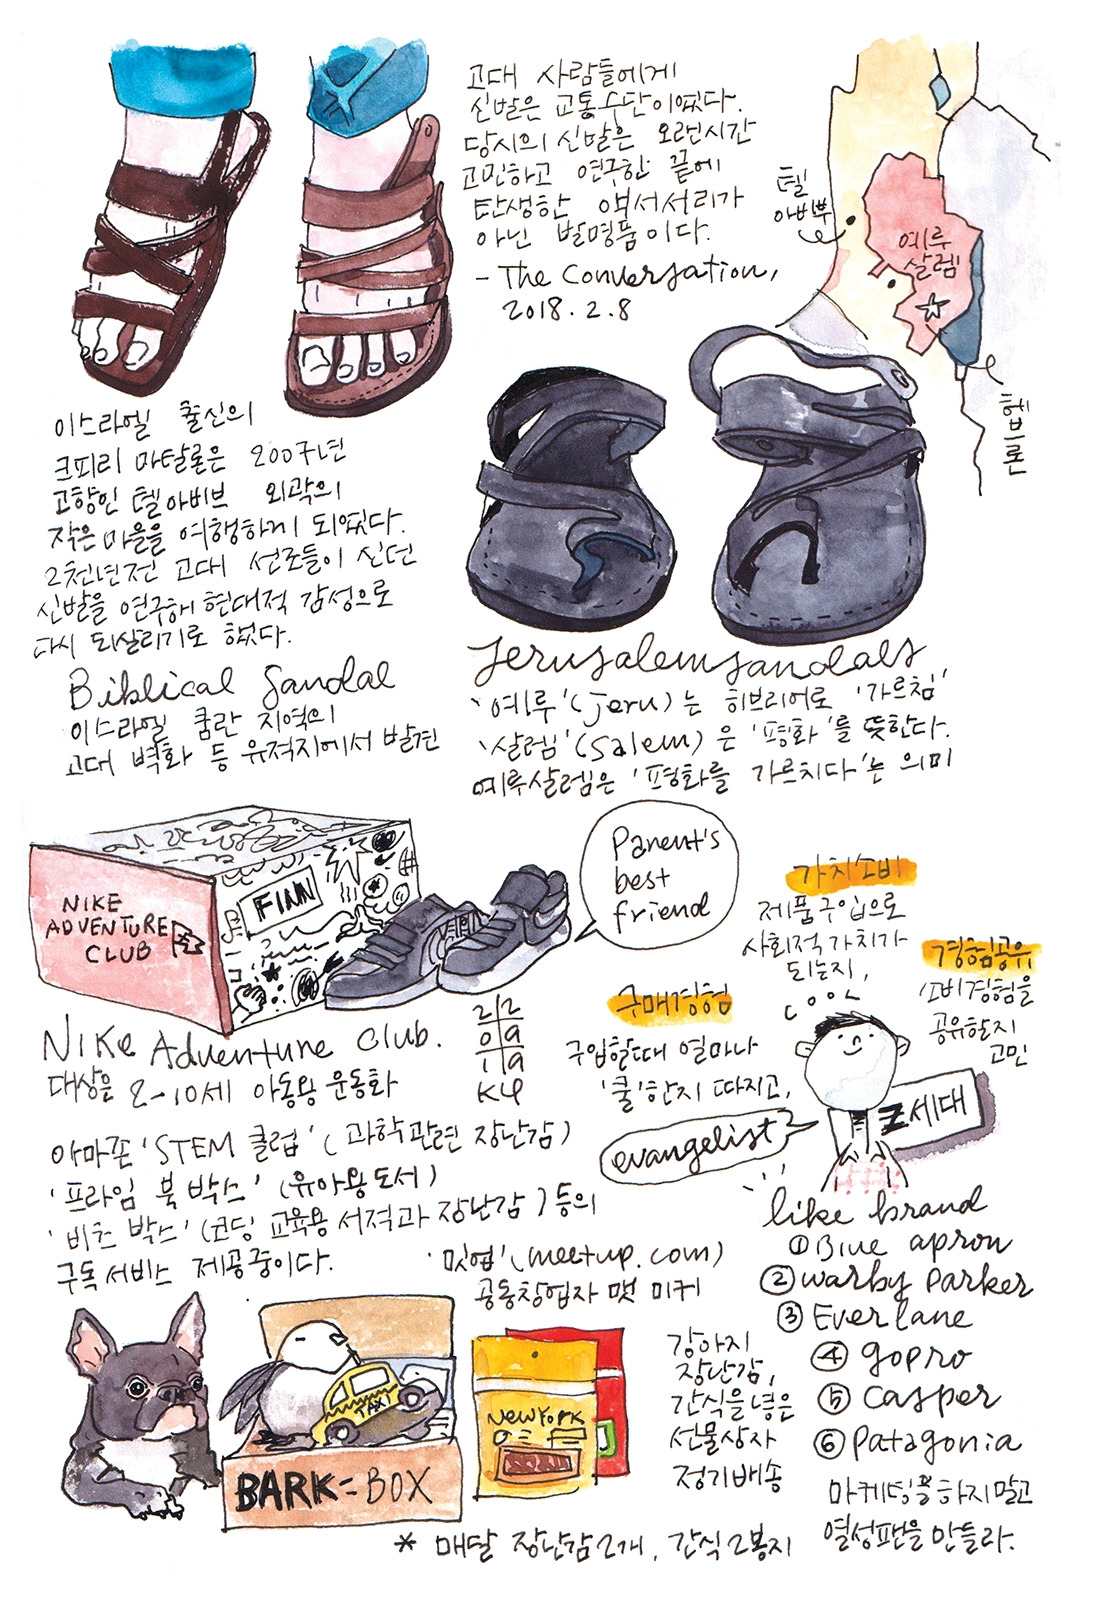 고대 사람들에게
신발은 교통수단이었다.
당시의 신발은 오랜시간
고민하고 연구한 끝에
탄생한 액서서리가
아닌 발명품이다.
- The Conversation,
2018. 2. 8
텔
아비브
예루
살렘
헤브론
이스라엘 출신의
크피리 마탈론은 2007년
고향인 텔아비브 외곽의
작은 마을을 여행하게 되었다.
2천년전 고대 선조들이 신던
신발을 연구해 현대적 감성으로
다시 되살리기로 했다.
Biblical Sandal
이스라엘 쿰란 지역의
고대 벽화 등 유적지에서 발견
Jerusalemsandals
'예루'(jeru)는 히브리어로 '가르침'
'살렘'(Salem)은 '평화'를 뜻한다.
예루살렘은 '평화를 가르치다'는 의미
NIKE
ADVENTURE
CLUB
FINN
Parent's
best
friend
Nike Adventure Club.
대상은 2-10세 아동용 운동화
2/2
0/9
1/9
K4
아마존 'STEM 클럽' (과학관련 장난감)
'프라임 북 박스' (유아용도서)
'비츠 박스' (코딩 교육용 서적과 장난감) 등의
구독서비스 제공중이다.
가치소비
제품구입으로
사회적가치가
되는지,
경험공유
소비경험을
공유할지
고민
구매경험
구입할때 얼마나
'쿨'한지 따지고,
cool
evangelist
Z세대
like brand
① Blue apron
② warby parker
③ Everlane
④ gopro
⑤ Casper
⑥ Patagonia
마케팅을 하지말고
열성팬을 만들라.
'밋업' (meetup.com)
공동창업자 맷 미커
BARK-BOX
TAXI
NEWYORK
강아지
장난감,
간식을 넣은
선물상자
정기배송
* 매달 장난감2개, 간식2봉지